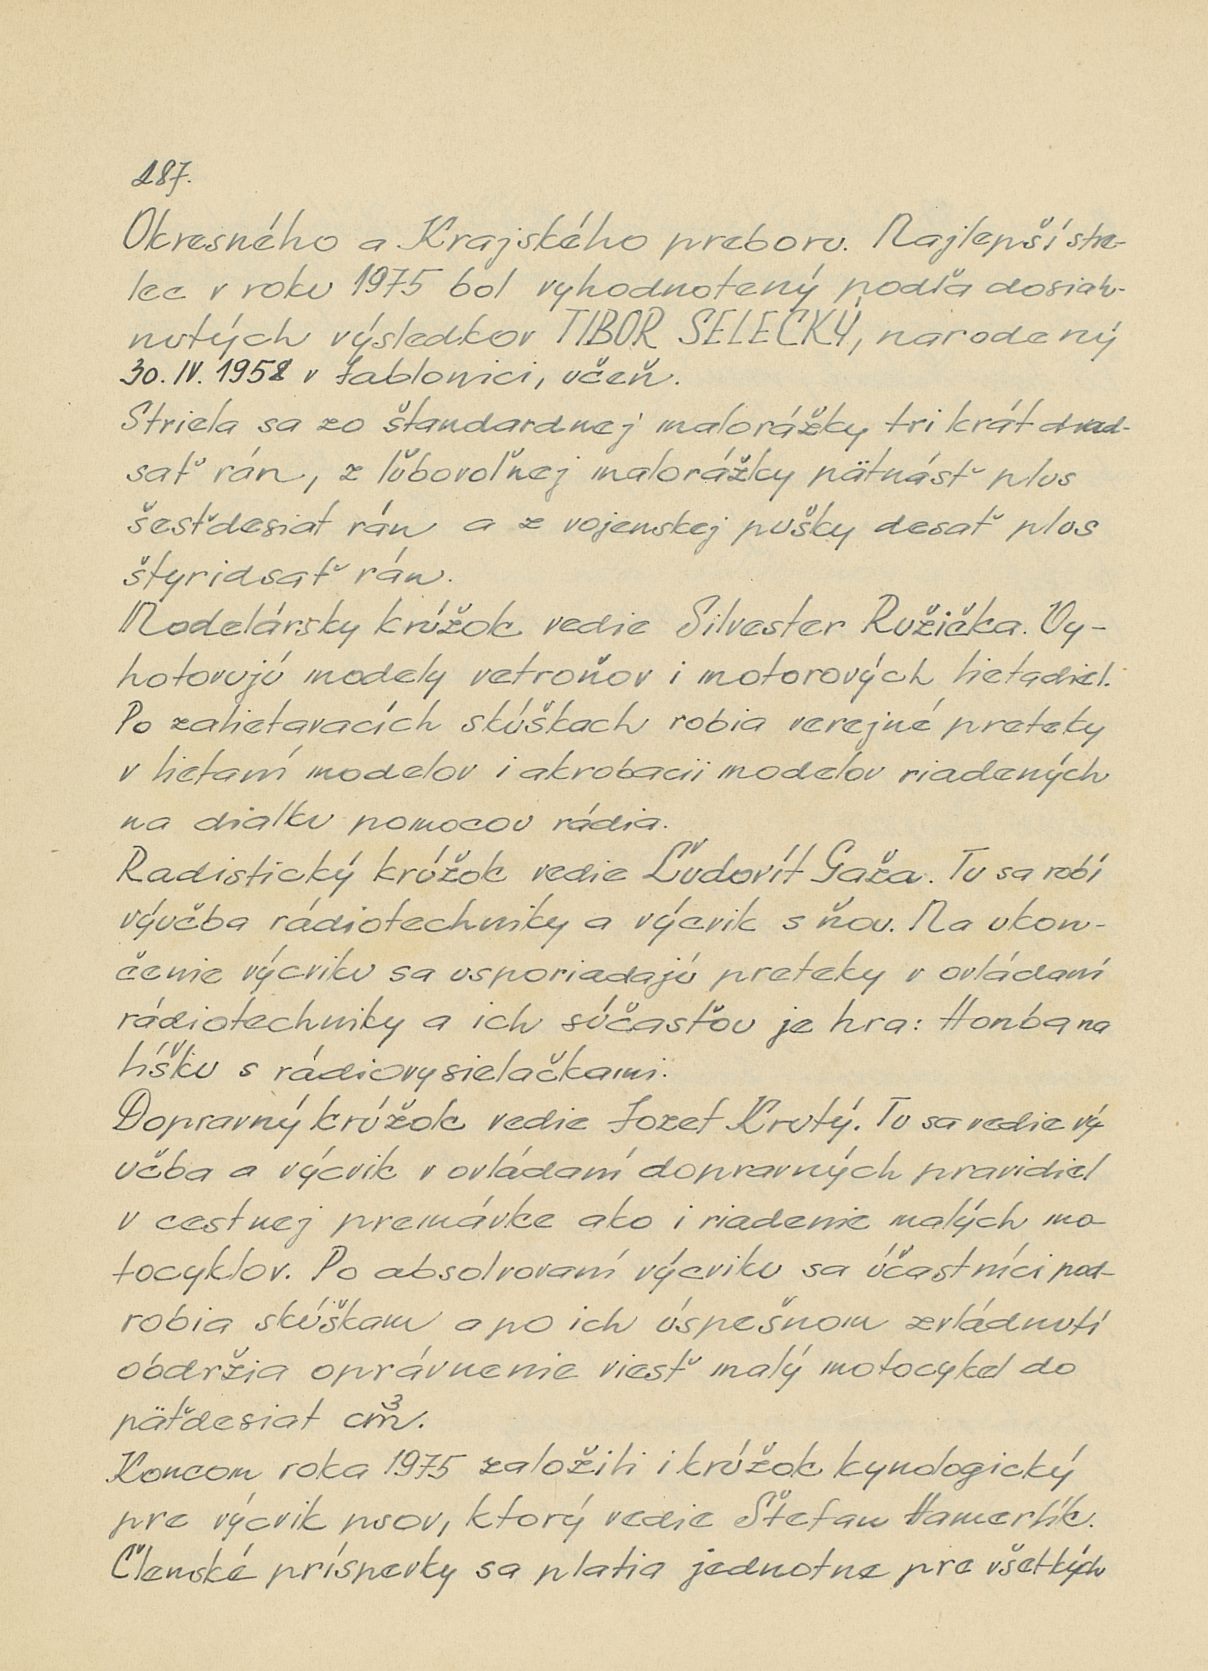 187.
Okresného a Krajského preboru. Najlepší stre-
lec v roku 1975 bol vyhodnotený podľa dosiah-
nutých výsledkov TIBOR SELECKÝ, narodený
30. IV. 1958 v Jablonici, učeň.
Striela sa zo štandardnej malorážky tri krát dvad-
sať rán, z ľubovoľnej malorážky pätnásť plus
šesťdesiat rán a z vojenskej pušky desať plus
štyridsať rán.
Modelársky krúžok vedie Silvester Ružička. Vy-
hotovujú modely vetroňov i motorových lietadiel.
Po zalietavacích skúškach robia verejné preteky
v lietaní modelov i akrobacii modelov riadených
na dialku pomocou rádia.
Radistický krúžok vedie Ľudovít Gaža. Tu sa robí
výučba rádiotechniky a výcvik s ňou. Na ukon-
čenie výcviku sa usporiadajú preteky v ovládaní
rádiotechniky a ich súčasťou je hra: Honba na
líšku s rádiovysielačkami.
Dopravný krúžok vedie Jozef Krutý. Tu sa vedie vý
učba a výcvik v ovládaní dopravných pravidiel
v cestnej premávke ako i riadenie malých mo-
tocyklov. Po absolvovaní výcviku sa účastníci pod-
robia skúškam a po ich úspešnom zvládnutí
obdržia oprávnenie viesť malý motocykel do
päťdesiat cm³.
Koncom roka 1975 založili i krúžok kynologický
pre výcvik psov, ktorý vedie Štefan Hamerlík.
Členské príspevky sa platia jednotne pre všetkých